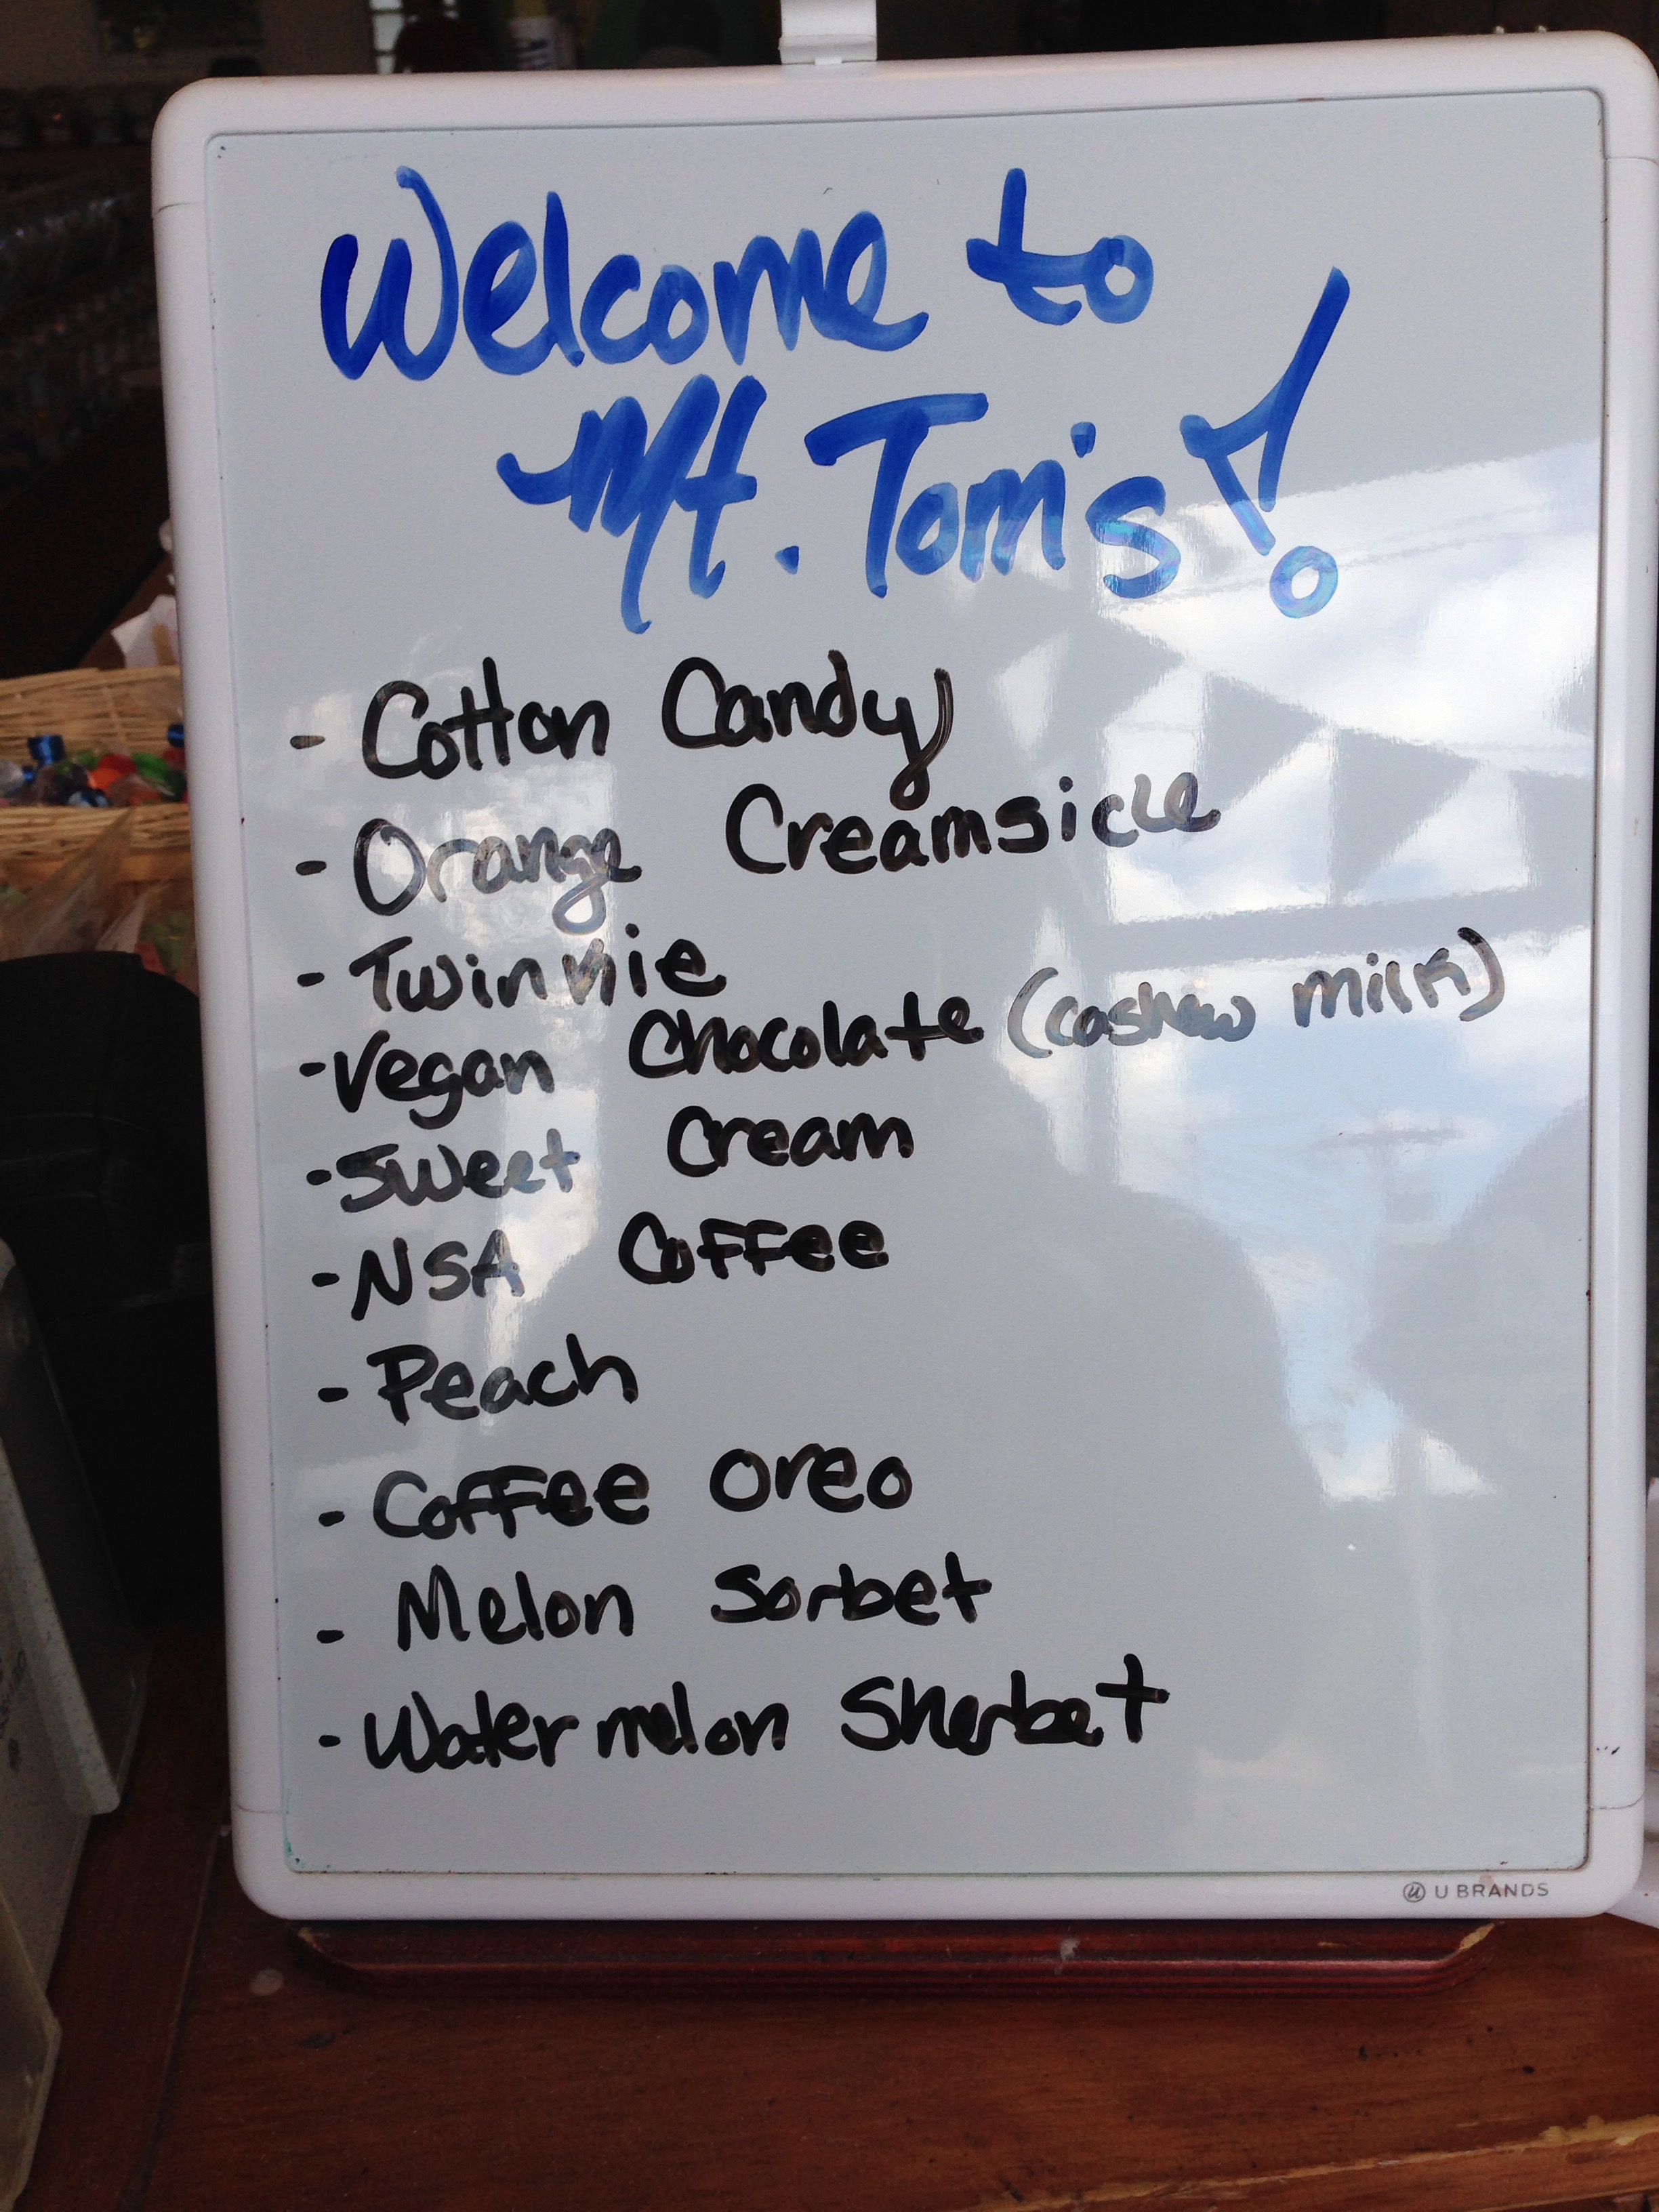 Welcome to
Mt. Tom's!
- Cotton Candy
- Orange Creamsicle
- Twinnie
- Vegan Chocolate (cashew milk)
- Sweet Cream
- NSA Coffee
- Peach
- Coffee Oreo
- Melon Sorbet
- Watermelon Sherbet
U BRANDS